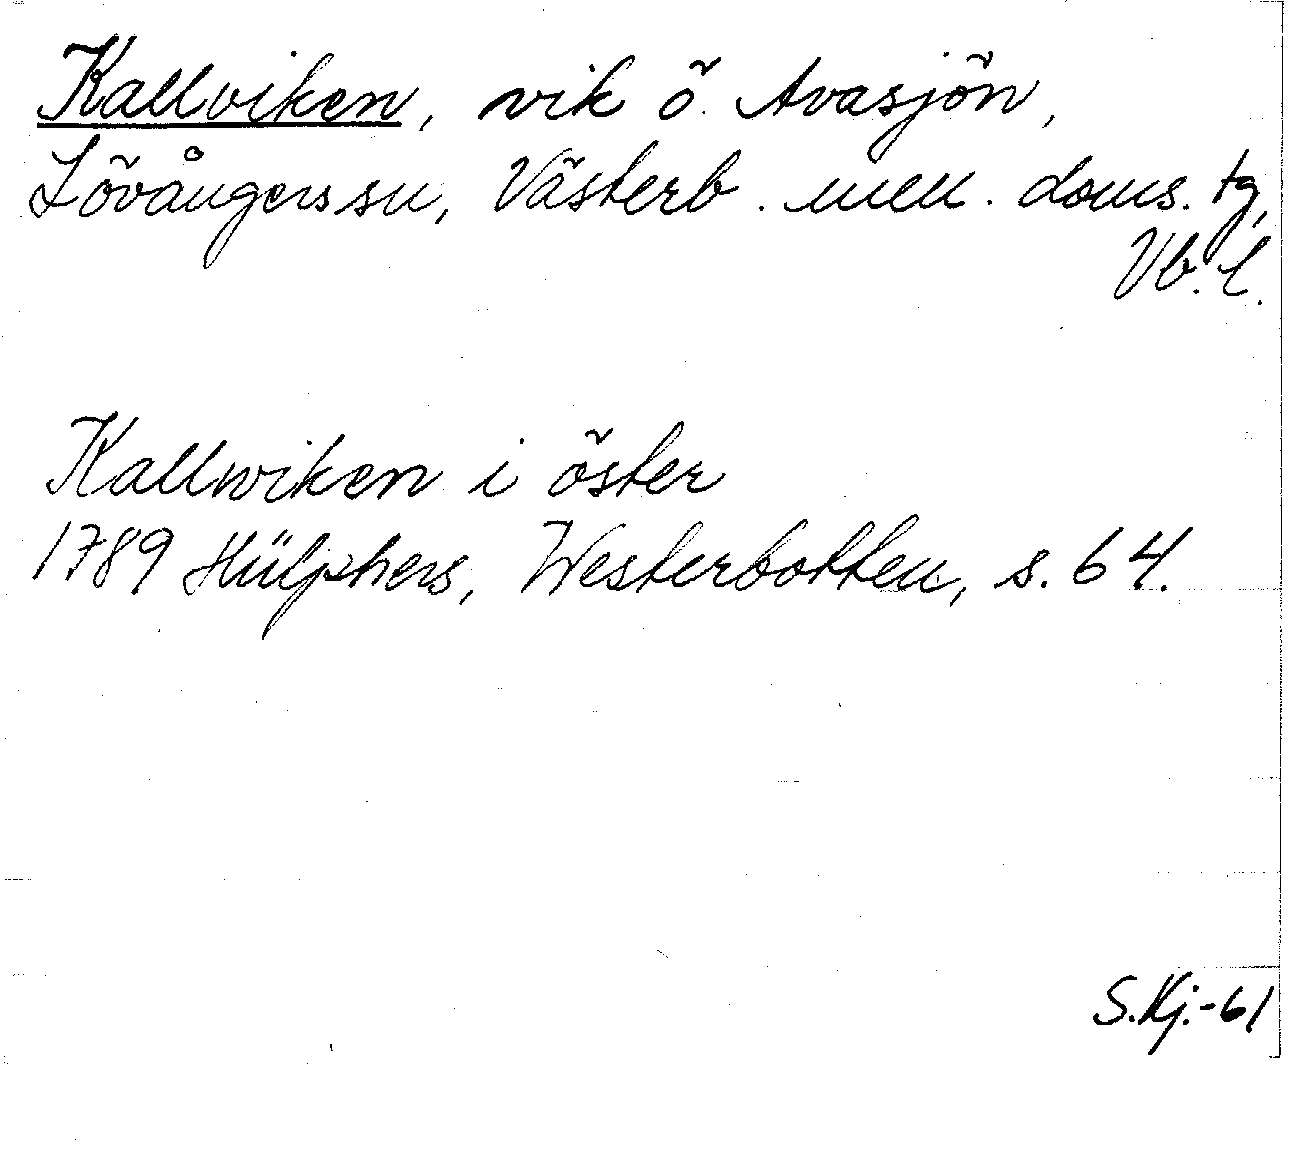 Kallviken, vik ö. Avasjön,
Lövångers sn, Västerb. mell. doms. tg,
Vb. l.
Kallwiken i öster
1789 Hülphers, Westerbotten, s. 64.
S.Kj.-61